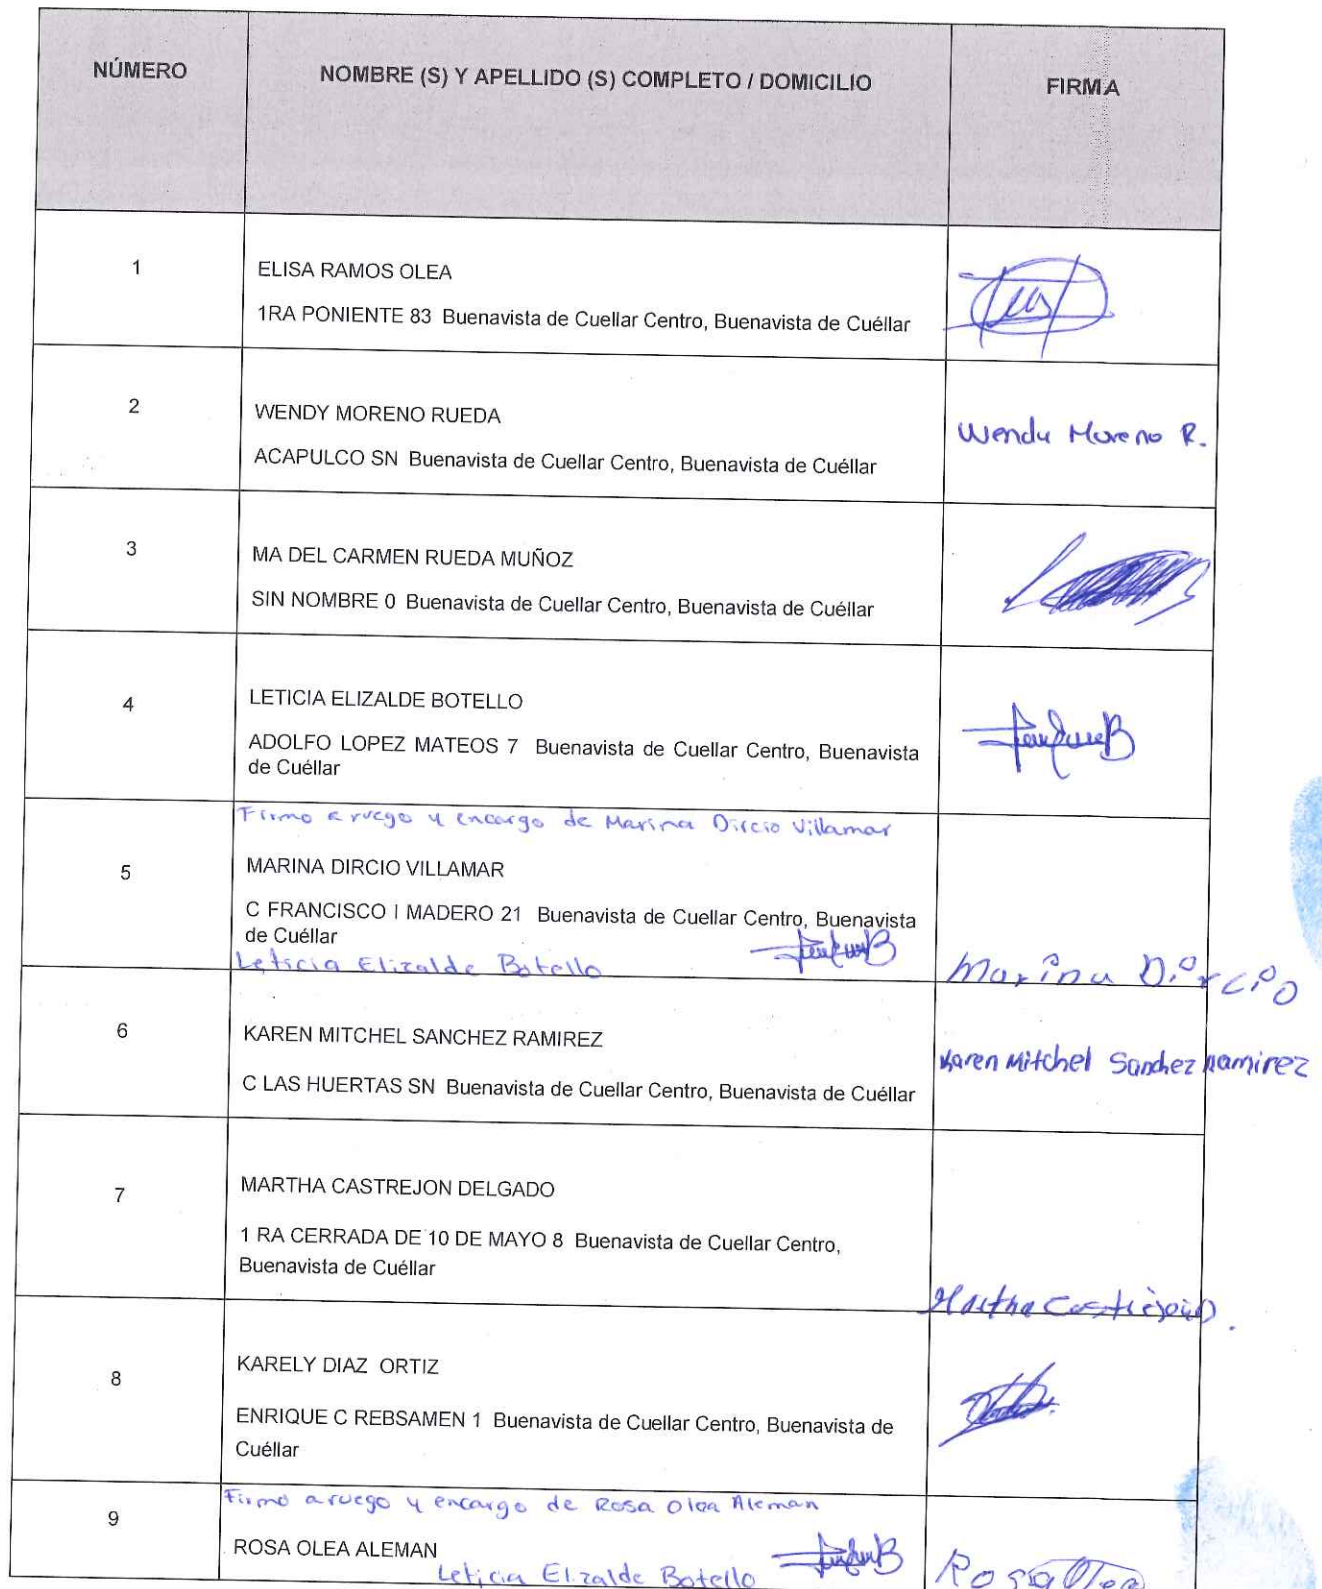 NÚMERO
NOMBRE (S) Y APELLIDO (S) COMPLETO / DOMICILIO
FIRMA
1
ELISA RAMOS OLEA
1RA PONIENTE 83 Buenavista de Cuellar Centro, Buenavista de Cuéllar
2
WENDY MORENO RUEDA
ACAPULCO SN Buenavista de Cuellar Centro, Buenavista de Cuéllar
Wendy Moreno R.
3
MA DEL CARMEN RUEDA MUÑOZ
SIN NOMBRE 0 Buenavista de Cuellar Centro, Buenavista de Cuéllar
4
LETICIA ELIZALDE BOTELLO
ADOLFO LOPEZ MATEOS 7 Buenavista de Cuellar Centro, Buenavista
de Cuéllar
Firmo a ruego y encargo de Marina Dircio Villamar
5
MARINA DIRCIO VILLAMAR
C FRANCISCO I MADERO 21 Buenavista de Cuellar Centro, Buenavista
de Cuéllar
Leticia Elizalde Botello
Marina Dircio
6
KAREN MITCHEL SANCHEZ RAMIREZ
C LAS HUERTAS SN Buenavista de Cuellar Centro, Buenavista de Cuéllar
Karen Mitchel Sanchez Ramirez
7
MARTHA CASTREJON DELGADO
1 RA CERRADA DE 10 DE MAYO 8 Buenavista de Cuellar Centro,
Buenavista de Cuéllar
Martha Castrejón D.
8
KARELY DIAZ ORTIZ
ENRIQUE C REBSAMEN 1 Buenavista de Cuellar Centro, Buenavista de
Cuéllar
Firmo a ruego y encargo de Rosa Olea Aleman
9
ROSA OLEA ALEMAN
Leticia Elizalde Botello
Rosa Olea